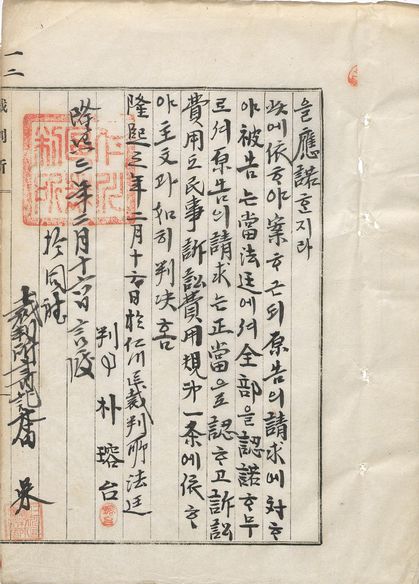 을應諾ᄒᆞᆫ지라
此에依ᄒᆞ야案ᄒᆞ근ᄃᆡ原告의請求에対ᄒᆞ
야被告ᄂᆞᆫ當法廷에셔全部을認諾ᄒᆞ무
로셔原告의請求ᄂᆞᆫ正當으로認ᄒᆞ고訴訟
費用은民事訴訟費用規則第一条에依ᄒᆞ
야主文과如히判决홈
隆熙三年二月十六日於仁川區裁判所法廷
判事 朴瑢台
隆熙三年二月十六日言渡
於同廳
裁判所書記
一二
裁判所